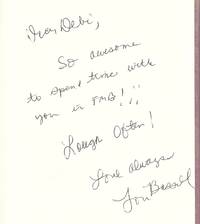 Dear Debi,
So awesome
to spend time with
you in PMB!!
Laugh Often!
Love always
Lori